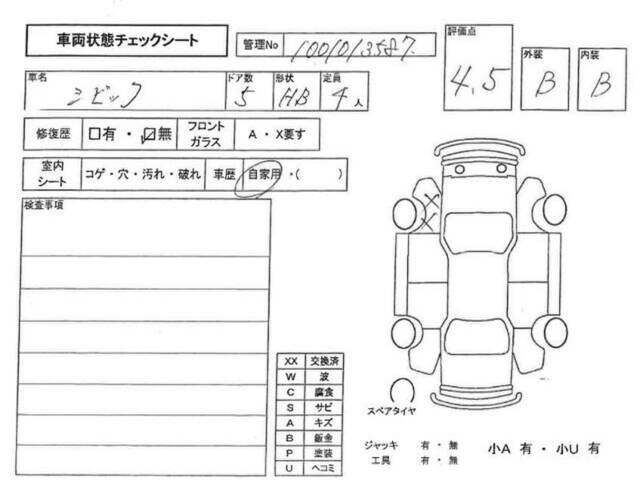 車両状態チェックシート
管理No 1001013587
評価点 4.5
外装 B
内装 B
車名 シビック
ドア数 5
形状 HB
定員 4人
修復歴 □有・☑無
フロントガラス A・X要す
室内シート コゲ・穴・汚れ・破れ
車歴 自家用・( )
検査事項
XX
XX 交換済
W 波
C 腐食
S サビ
A キズ
B 鈑金
P 塗装
U ヘコミ
スペアタイヤ
ジャッキ 有・無
工具 有・無
小A 有・小U 有